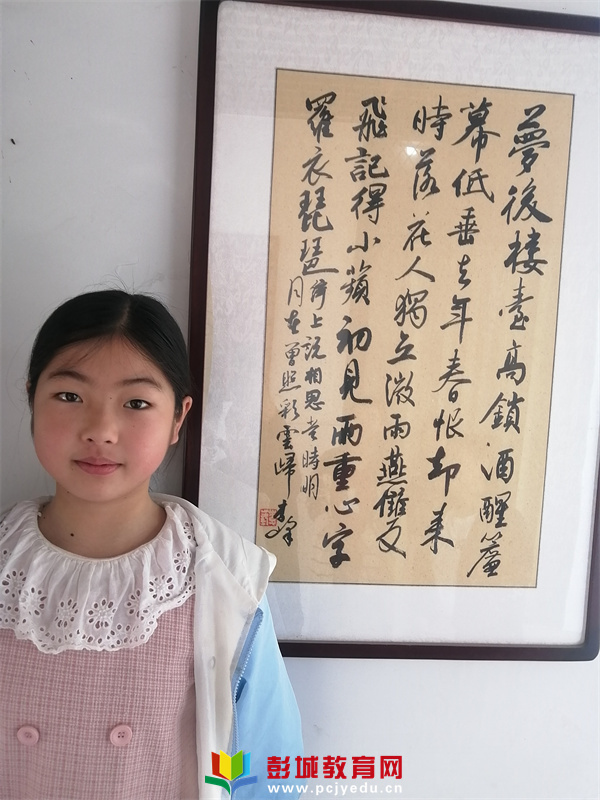 夢後楼臺高鎖酒醒簾
幕低垂去年春恨却来
時落花人獨立微雨燕雙
飛記得小蘋初見兩重心字
羅衣琵琶弦上説相思當時明
月在曾照彩雲歸
彭城教育网
www.pcjyedu.cn